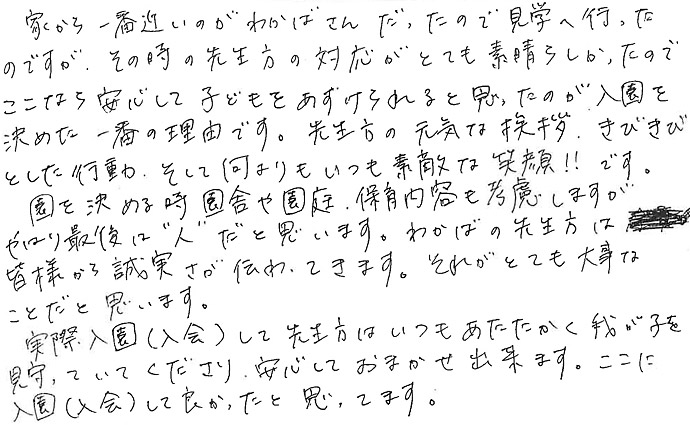 家から一番近いのがわかばさんだったので見学へ行った
のですが、その時の先生方の対応がとても素晴らしかったので
ここなら安心して子どもをあずけられると思ったのが、入園を
決めた一番の理由です。先生方の元気な挨拶、きびきび
とした行動、そして何よりもいつも素敵な笑顔!!です。
園を決める時園舎や園庭、保育内容も考慮しますが
やはり最後は"人"だと思います。わかばの先生方は
皆様から誠実さが伝わってきます。それがとても大事な
ことだと思います。
実際、入園(入会)して先生方はいつもあたたかく我が子を
見守っていてくださり、安心しておまかせ出来ます。ここに
入園(入会)して良かったと思ってます。